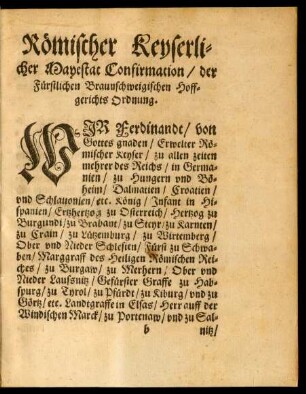 Römischer Keyserli-
cher Mayestat Confirmation / der
Fürstlichen Braunschweigischen Hoff-
gerichts Ordnung.
WIR Ferdinandt / von
Gottes gnaden / Erwelter Rö-
mischer Keyser / zu allen zeiten
mehrer des Reichs / in Germa-
nien / zu Hungern und Bö-
heim / Dalmatien / Croatien /
und Schlauonien / etc. König / Infant in Hi-
spanien / Ertzhertzog zu Osterreich / Hertzog zu
Burgundi / zu Brabant / zu Steyr / zu Karnten /
zu Crain / zu Lützenburg / zu Wirtemberg /
Ober und Nieder Schlesien / Fürst zu Schwa-
ben / Marggraff des Heiligen Römischen Rei-
ches / zu Burgaw / zu Merhern / Ober und
Nieder Laussnitz / Gefürster Graffe zu Hab-
spurg / zu Tyrol / zu Pfürdt / zu Kiburg / und zu
Görtz / etc. Landtgraffe in Elsas / Herr auff der
Windischen Marck / zu Portenaw / und zu Sal-
b nitz /